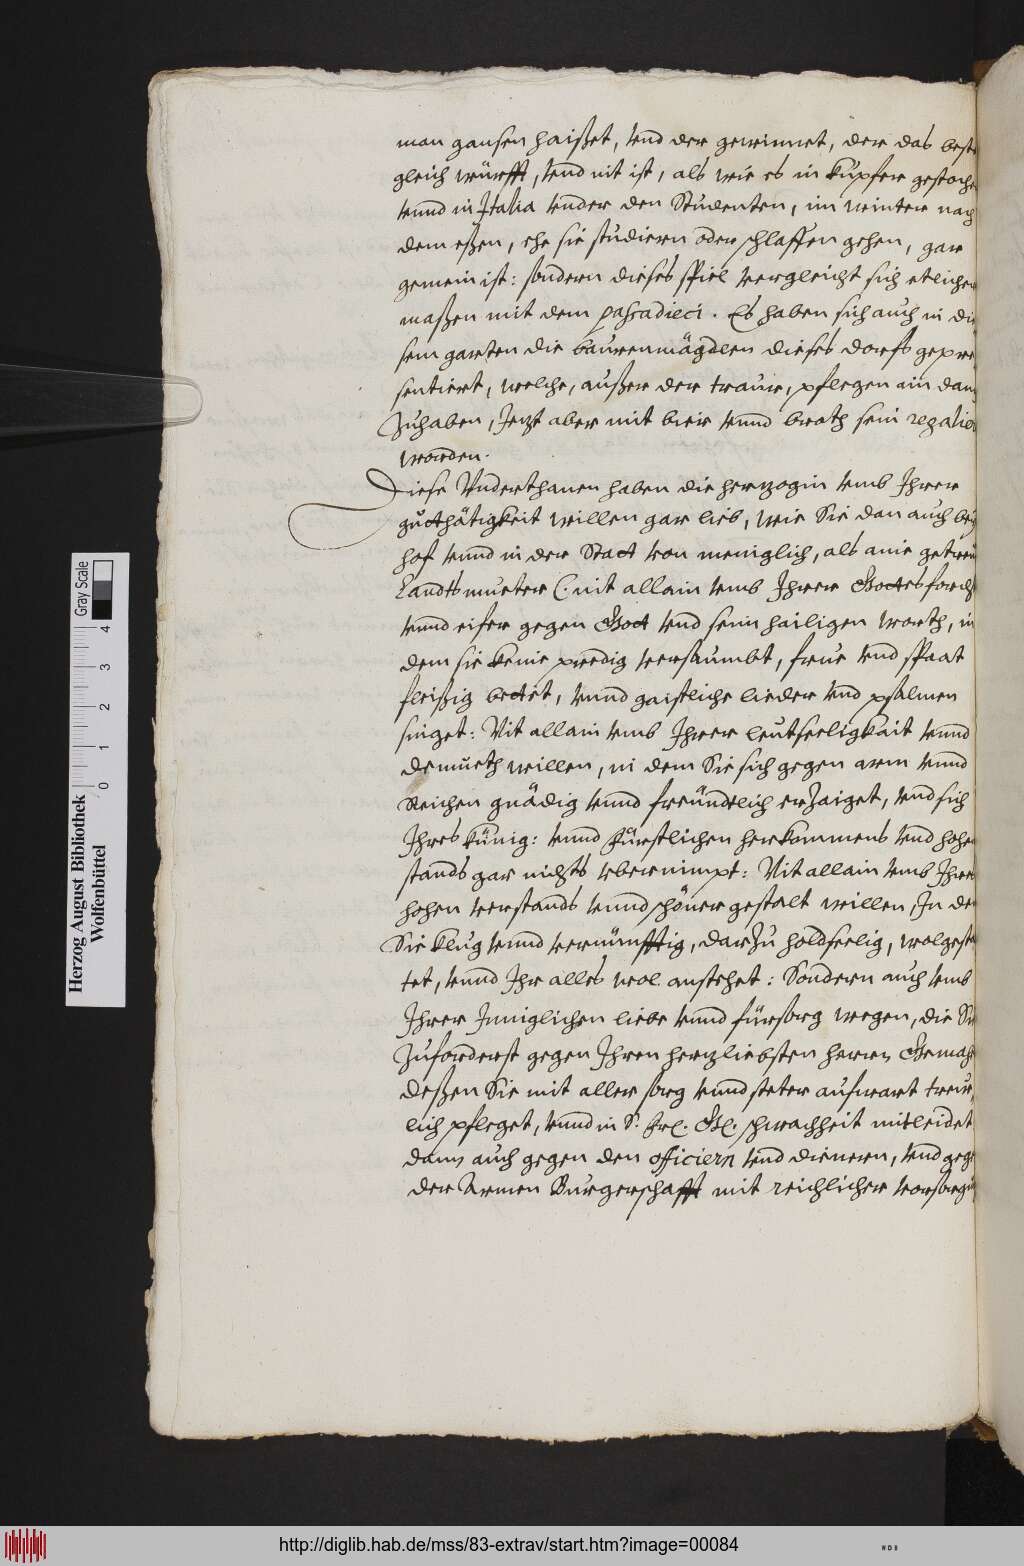 man gansen haißet, vnd der gewinnet, der das best
gleich würfft, vnd nit ist, als wie es in kupfer gestoche
vnnd in Italia vnder den Studenten, im winter nach
dem eßen, ehe sie studiern oder schlaffen gehen, gar
gemein ist: sondern dieses spiel vergleicht sich etlicher
maßen mit dem passadieci. Es haben sich auch in die
sem garten die baurenmägdlen dieses dorfs gepre
sentiert, welche, außer der traur, pflegen ain dan
zuhaben, Jetzt aber mit bier vnnd broth sein regalier
worden.
Diese Vnderthanen haben die hertzogin vmb Ihrer
guttthätigkeit willen gar lieb, wie Sie dan auch bey
hof vnnd in der Statt von meniglich, als aine getreü
Landtsmueter (: nit allain vmb Ihrer Gottesforch
vnnd eifer gegen Gott vnd seim hailigen worth, in
dem sie keine predig versaumbt, frue vnd spaat
fleißig bettet, vnnd gaistliche lieder vnd psalmen
singet: Nit allain vmb Ihrer leutseeligkait vnnd
demueth willen, in dem Sie sich gegen arm vnnd
Reichen gnädig vnnd freündtlich erzaiget, vnd sich
Ihres künig: vnnd Fürstlichen herkommens vnd hohe
stands gar nichts vbernimpt: Nit allain vmb Ihres
hohen verstands vnnd schöner gestalt willen, In de
Sie klug vnnd vernünfftig, darzu holdseelig, wolgesta
tet, vnnd Ihr alles wol anstehet: Sondern auch vmb
Ihrer Inniglichen liebe vnnd fürsorg wegen, die Sie
zuforderst gegen Ihren hertzliebsten herrn Gemah
deßen Sie mit aller sorg vnnd steter aufwart treu,
lich pfleget, vnnd in S. Frl. Gl. schwachheit mitleidet
dann auch gegen den officiern vnd dienern, vnd gege
der Armen Burgerschafft mit reichlicher vorsorgu
Herzog August Bibliothek
Wolfenbüttel
0 1 2 3 4
Gray Scale
http://diglib.hab.de/mss/83-extrav/start.htm?image=00084
WDB